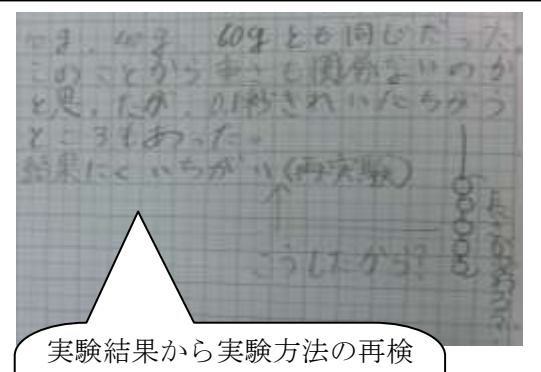 g、40g、60gとも同じだった。
このことから重さも関係ないのか
と思ったが、0.1秒きれいにちがう
ところもあった。
結果にくいちがい(再実験)
こうしたから?
実験結果から実験方法の再検